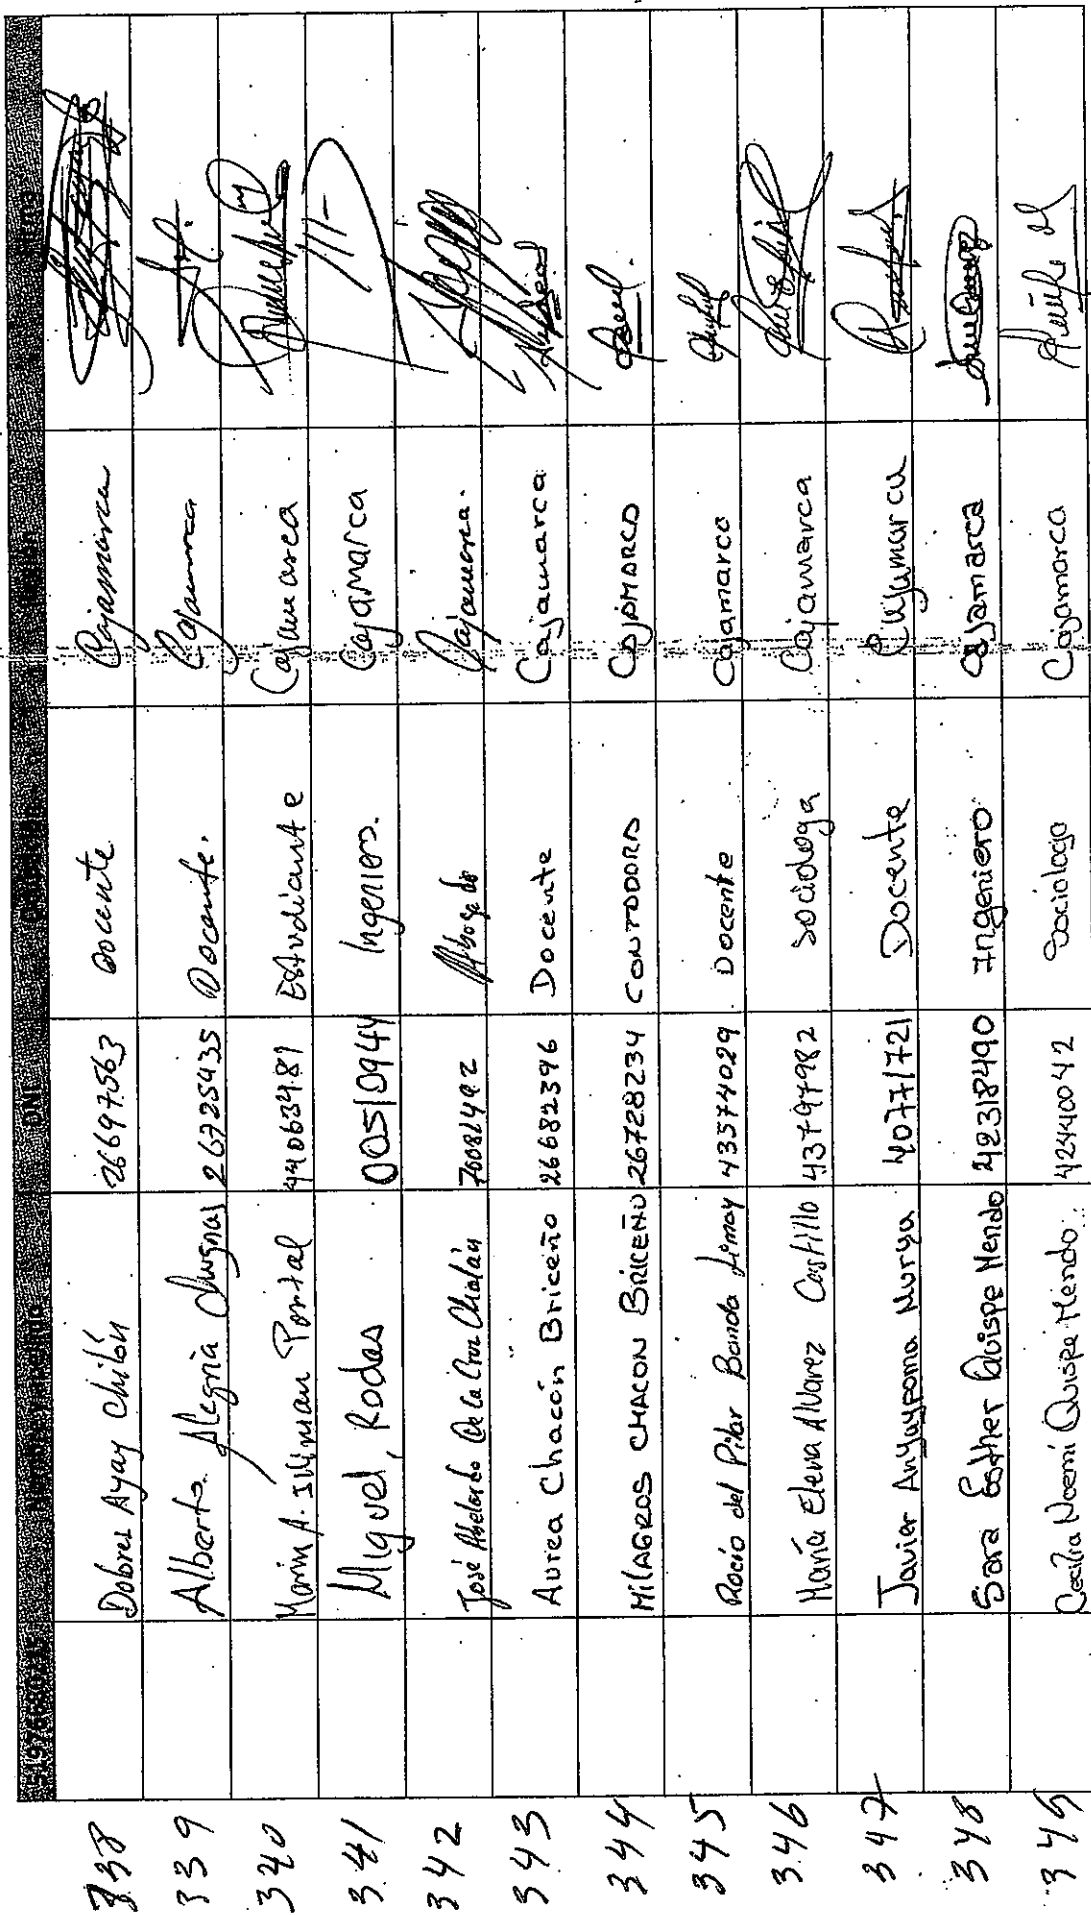 DNI
338 Dolores Ayay Chilón 26697563 Docente Cajamarca
339 Alberto Alegría 26725435 Docente. Cajamarca
340 Marin A. Portal 44063481 Estudiante Cajamarca
341 Miguel, Rodas 00510944 Ingeniero. Cajamarca
342 José Abelardo De la Cruz Cholán Abogado Cajamarca.
343 Aurea Chacón Briceño 26682396 Docente Cajamarca
344 MILAGROS CHACON BRICEÑO 26728234 CONTADORA CAJAMARCA
345 Rocío del Pilar Banda Limay 43574029 Docente Cajamarca
346 María Elena Alvarez Castillo 43797982 Sociologa Cajamarca
347 Javier Anyaypoma 40771721 Docente Cajamarca
348 Sara Esther Quispe Mendo 42318490 Ingeniero Cajamarca
349 Cecilia Noemí Quispe Mendo 42440042 Sociologa Cajamarca